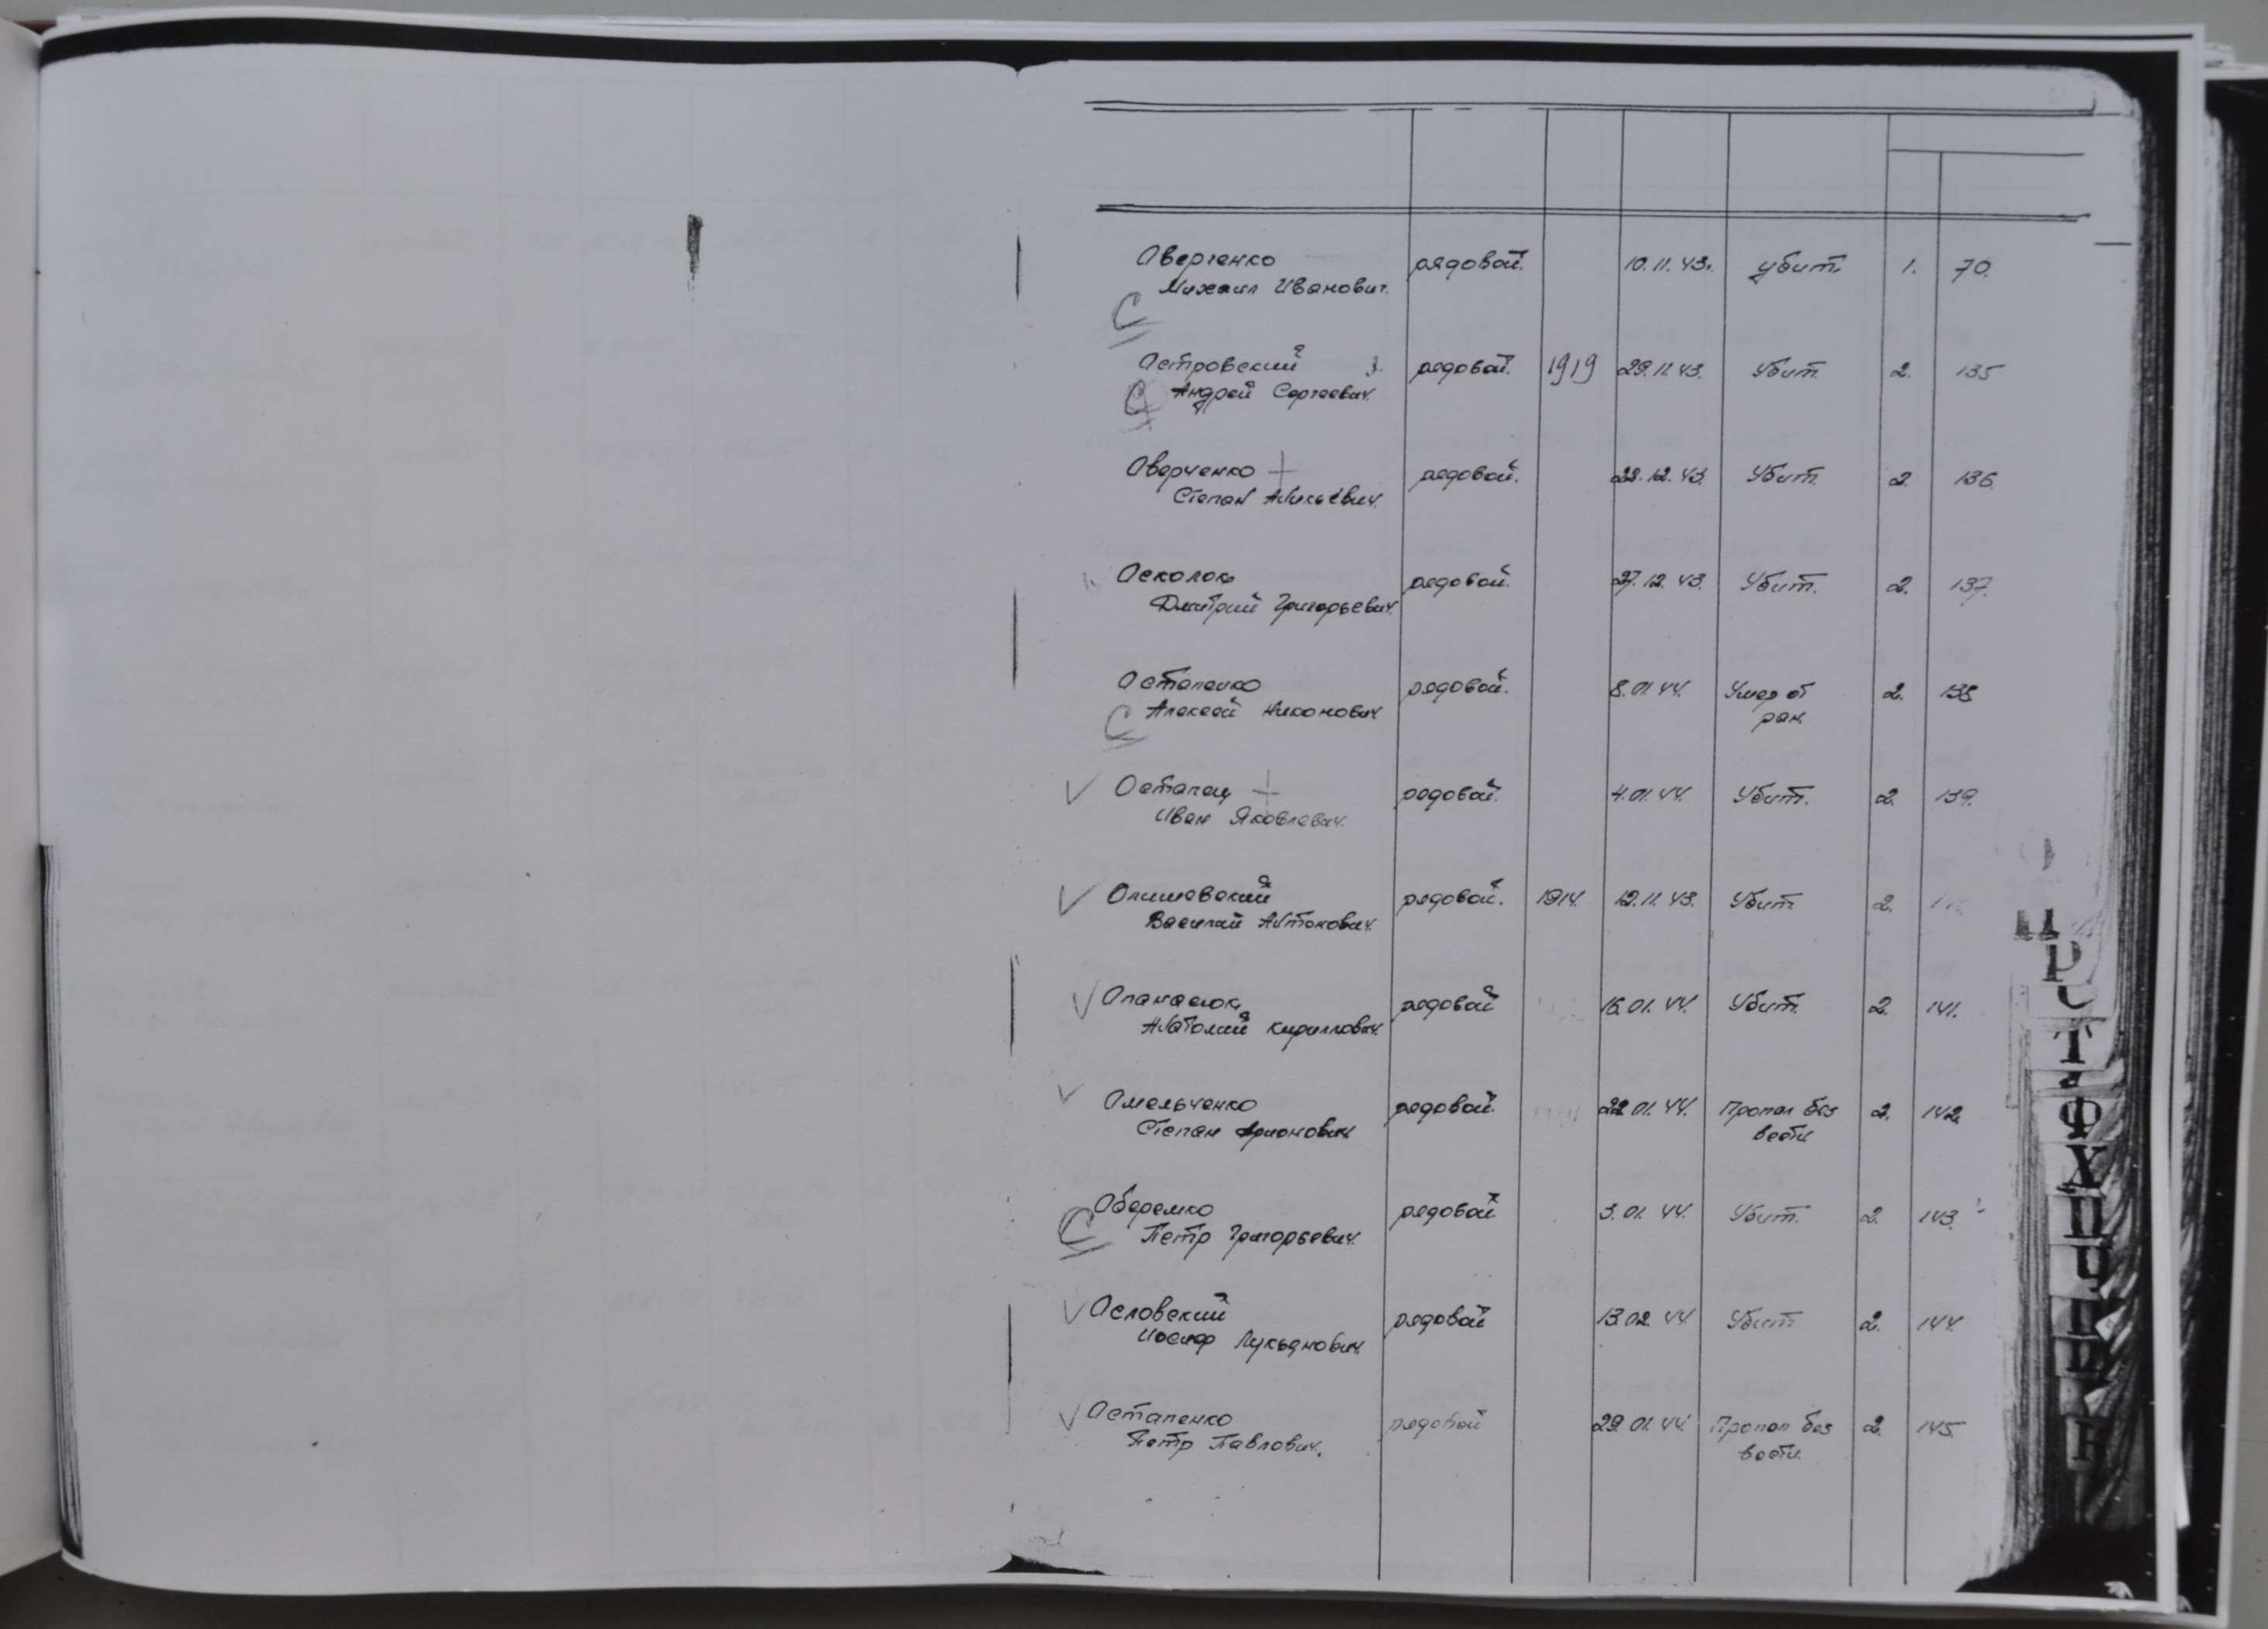 Оверченко рядовой. 10.11.43. убит. 1. 70.
Михаил Иванович.
С
Островский рядовой. 1919 29.11.43. Убит. 2. 135
С Андрей Сергеевич.
Оверченко + рядовой. 22.12.43. Убит. 2. 136.
Степан
Осколок рядовой. 27.12.43. Убит. 2. 137.
Дмитрий Григорьевич.
Остапенко рядовой. 8.01.44. Умер от 2. 138
С Алексей Никонович ран.
Остапец + рядовой. 4.01.44. Убит. 2. 139.
Иван Яковлевич.
Олишевский рядовой. 1914. 12.11.43. Убит 2.
Василий Антонович.
Опанасюк рядовой 16.01.44. Убит. 2. 141.
Анатолий Кириллович.
Омельченко рядовой. 22.01.44. Пропал без 2. 142.
Степан вести
Оберемко рядовой. 3.01.44. Убит. 2. 143.
С Петр Григорьевич.
Ословский рядовой 13.02.44 Убит 2. 144.
Иосиф Лукьянович.
Остапенко рядовой 29.01.44. Пропал без 2. 145.
Петр Павлович. вести.
Р
С
Т
Ф
Х